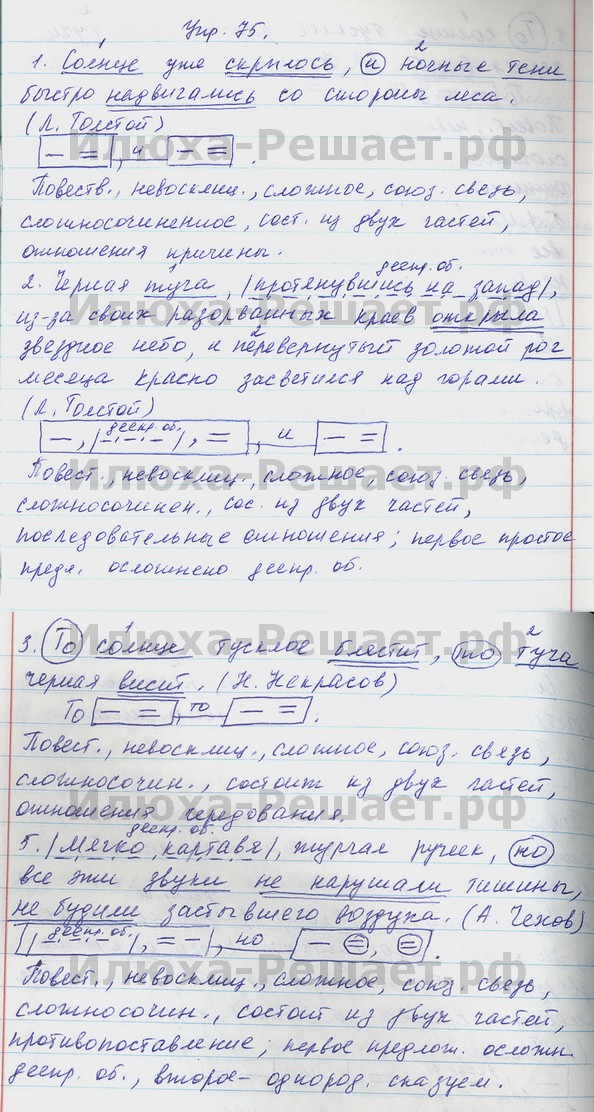 Упр. 75.
1. Солнце уже скрылось, и ночные тени
быстро надвигались со стороны леса.
(Л. Толстой)
[— =], и [— =].
Повеств., невосклиц., сложное, союз. связь,
сложносочиненное, сост. из двух частей,
отношения причины.
дееpr. об.
2. Черная туча, |протянувшись на запад|,
из-за своих разорванных краев открыла
звездное небо, и перевернутый золотой рог
месяца красно засветился над горами.
(Л. Толстой)
[—, |деепр. об.|, =], и [— =].
Повест., невосклиц., сложное, союз. связь,
сложносочинен., сос. из двух частей,
последовательные отношения; первое простое
предл. осложнено деепр. об.
3. То солнце тусклое блестит, то туча
черная висит. (Н. Некрасов)
То [— =], то [— =].
Повест., невосклиц., сложное, союз. связь,
сложносочин., состоит из двух частей,
отношения чередования.
деепр. об.
5. |Мягко картавя|, журчал ручеек, но
все эти звуки не нарушали тишины,
не будили застывшего воздуха. (А. Чехов)
[|деепр. об.|, = —], но [— =, =].
Повест., невосклиц., сложное, союз. связь,
сложносочин., состоит из двух частей,
противопоставление; первое предлож. осложн.
деепр. об., второе – однород. сказуем.
Илюха-Решает.рф
Илюха-Решает.рф
Илюха-Решает.рф
Илюха-Решает.рф
Илюха-Решает.рф
Илюха-Решает.рф